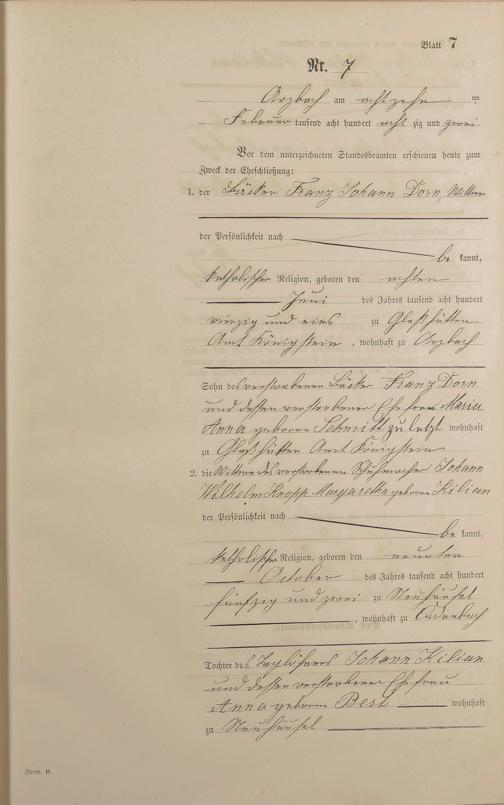 Blatt 7
Nr. 7
Arzbach am achtzehn ten
Februar tausend acht hundert acht zig und zwei
Vor dem unterzeichneten Standesbeamten erschienen heute zum
Zweck der Eheschließung:
1. der Bäcker Franz Johann Dorn, Wittwer
der Persönlichkeit nach
be kannt,
katholischer Religion, geboren den achten
Juni des Jahres tausend acht hundert
vierzig und eins zu Glashütten
Amt Königstein, wohnhaft zu Arzbach
Sohn des verstorbenen Bäcker Franz Dorn
und dessen verstorbener Ehefrau Maria
Anna geborene Schmitt zuletzt wohnhaft
zu Glashütten Amt Königstein
2. die Wittwe des verstorbenen Schuhmacher Johann
Wilhelm Knopp Margaretha geborene Kilian
der Persönlichkeit nach
be kannt,
katholischer Religion, geboren den neunten
October des Jahres tausend acht hundert
fünfzig und zwei zu Neuhäusel
, wohnhaft zu Cadenbach
Tochter des Taglöhners Johann Kilian
und dessen verstorbener Ehefrau
Anna geborene Best wohnhaft
zu Neuhäusel
Form. B.